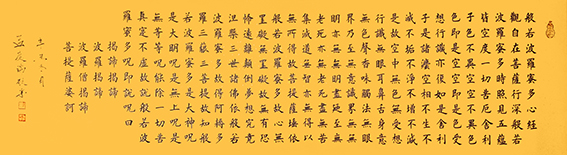 般若波羅蜜多心經
觀自在菩薩行深般若
波羅蜜多時照見五蘊
皆空度一切苦厄舍利
子色不異空空不異色
色即是空空即是色受
想行識亦復如是舍利
子是諸法空相不生不
滅不垢不淨不增不減
是故空中無色無受想
行識無眼耳鼻舌身意
無色聲香味觸法無眼
界乃至無意識界無無
明亦無無明盡乃至無
老死亦無老死盡無苦
集滅道無智亦無得以
無所得故菩提薩埵依
般若波羅蜜多故心無
罣礙無罣礙故無有恐
怖遠離顛倒夢想究竟
涅槃三世諸佛依般若
波羅蜜多故得阿耨多
羅三藐三菩提故知般
若波羅蜜多是大神呪
是大明呪是無上呪是
無等等呪能除一切苦
真實不虛故說般若波
羅蜜多呪即說呪曰
揭諦揭諦
波羅揭諦
波羅僧揭諦
菩提薩婆訶